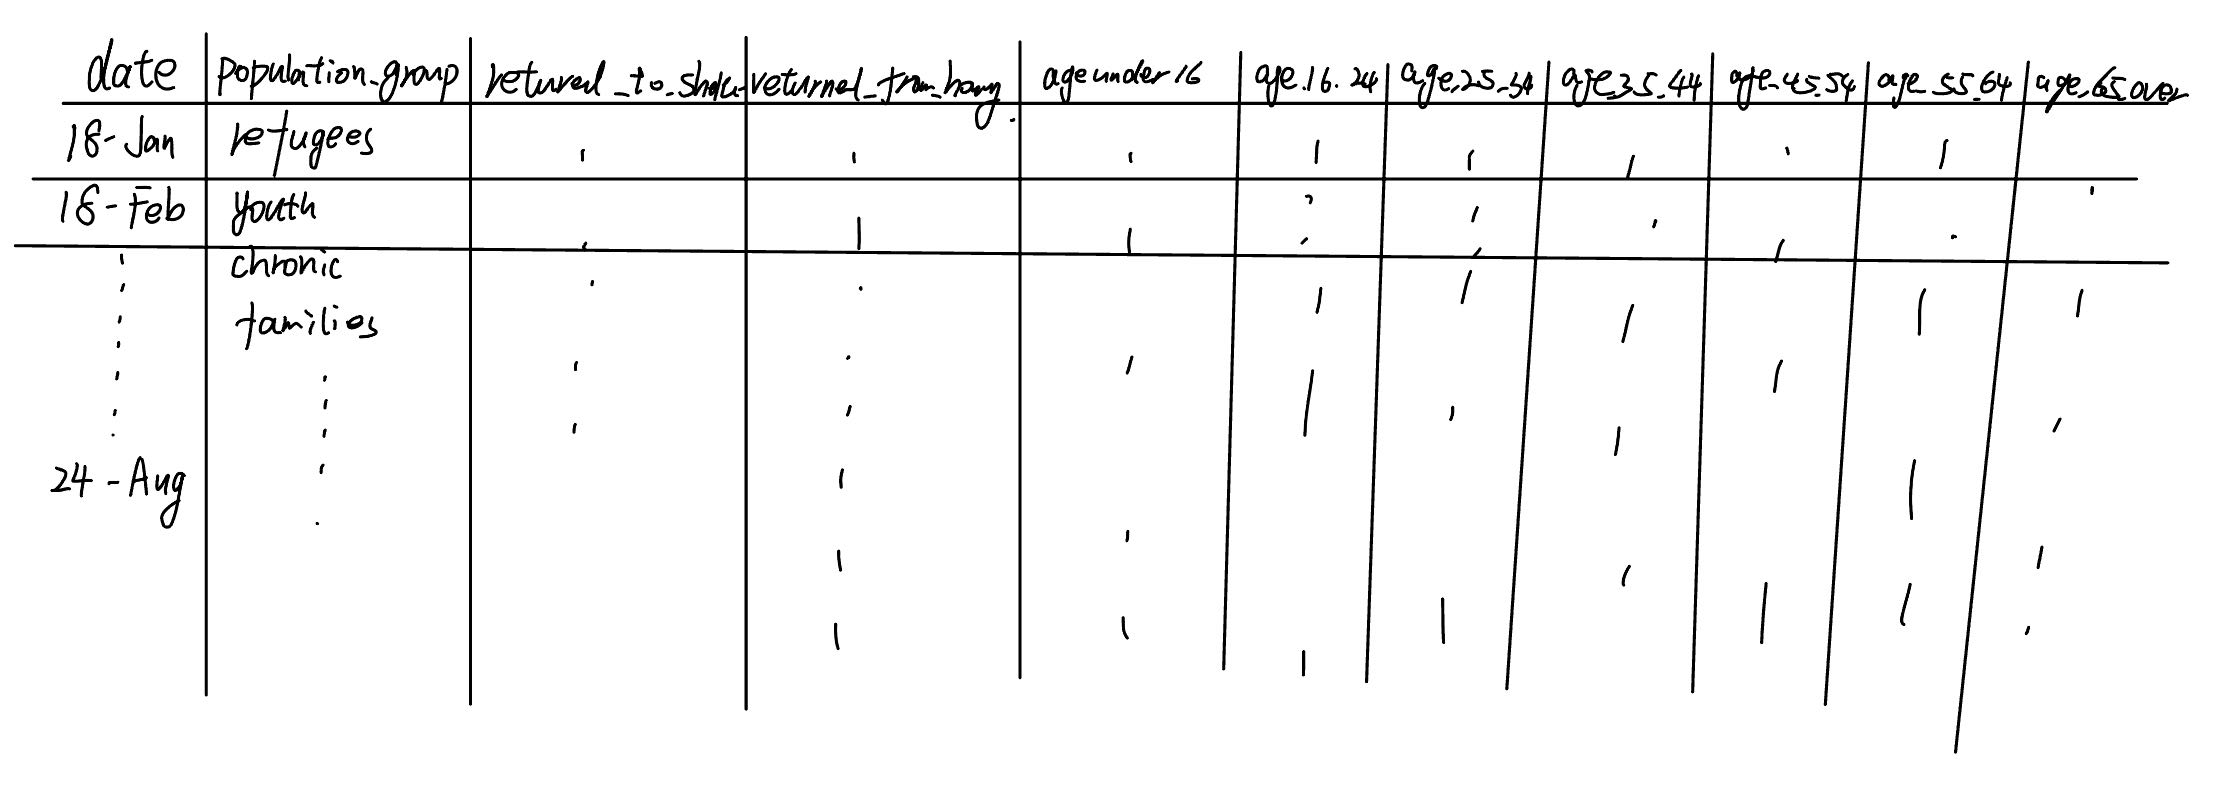 date population_group retured_to_shelu returnel_from_houng ageunder16 age.16.24 age.25_34 age_35_44 age_45.54 age_55_64 age_65_over
18-Jan refugees
18-Feb youth
chronic
families
24-Aug